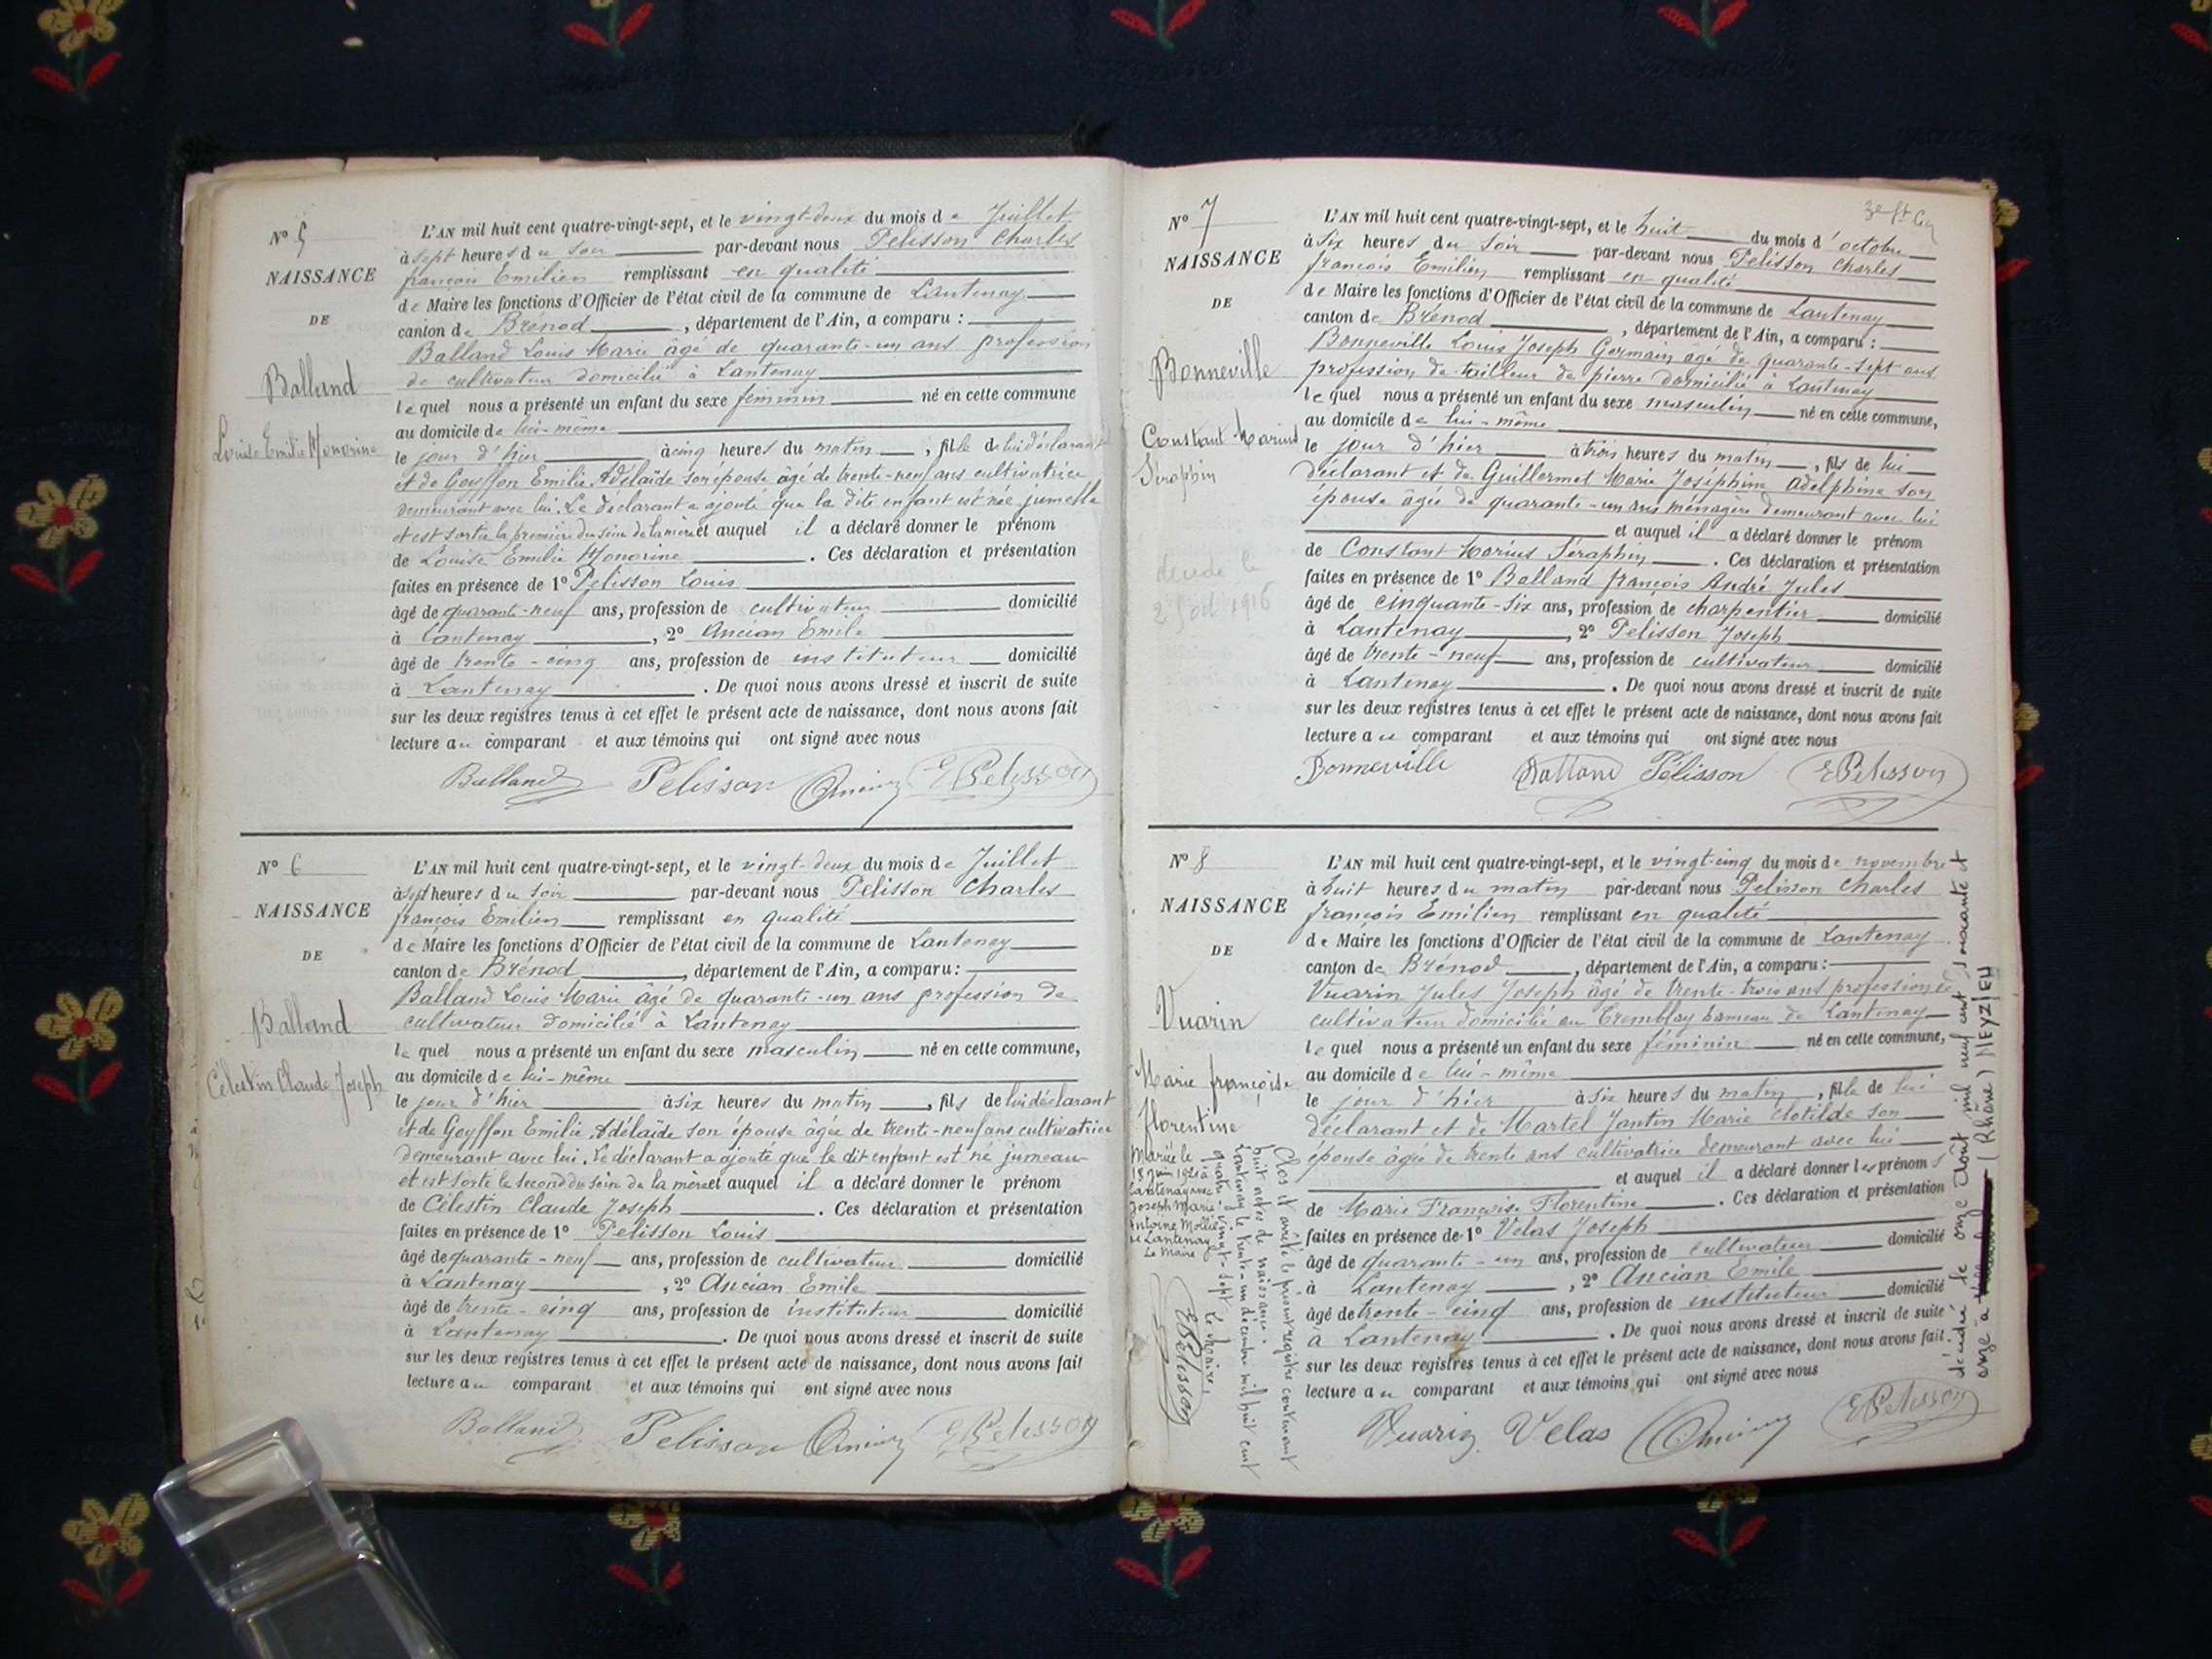 N° 5
NAISSANCE
DE
Balland
Louise Emilie Honorine
L'AN mil huit cent quatre-vingt-sept, et le vingt-deux du mois de Juillet
à sept heures du soir par-devant nous Pelisson Charles
françois Emilien remplissant en qualité
de Maire les fonctions d'Officier de l'état civil de la commune de Lantenay
canton de Brénod, département de l'Ain, a comparu :
Balland Louis Marie âgé de quarante-un ans profession
de cultivateur domicilié à Lantenay
lequel nous a présenté un enfant du sexe féminin né en cette commune
au domicile de lui-même
le jour d'hier à cinq heures du matin, fille de lui déclarant
et de Goyffon Emilie Adélaïde son épouse âgé de trente-neuf ans cultivatrice
demeurant avec lui. Le déclarant a ajouté que la dite enfant est née jumelle
et est sortie la première du sein de la mère et auquel il a déclaré donner le prénom
de Louise Emilie Honorine. Ces déclaration et présentation
faites en présence de 1° Pelisson Louis
âgé de quarante-neuf ans, profession de cultivateur domicilié
à Lantenay, 2° Ancian Emile
âgé de trente-cinq ans, profession de instituteur domicilié
à Lantenay. De quoi nous avons dressé et inscrit de suite
sur les deux registres tenus à cet effet le présent acte de naissance, dont nous avons fait
lecture au comparant et aux témoins qui ont signé avec nous
Balland Pelisson Ancian E Pelisson
N° 6
NAISSANCE
DE
Balland
Célestin Claude Joseph
L'AN mil huit cent quatre-vingt-sept, et le vingt-deux du mois de Juillet
à sept heures du soir par-devant nous Pelisson Charles
françois Emilien remplissant en qualité
de Maire les fonctions d'Officier de l'état civil de la commune de Lantenay
canton de Brénod, département de l'Ain, a comparu :
Balland Louis Marie âgé de quarante-un ans profession de
cultivateur domicilié à Lantenay
lequel nous a présenté un enfant du sexe masculin né en cette commune,
au domicile de lui-même
le jour d'hier à six heures du matin, fils de lui déclarant
et de Goyffon Emilie Adélaïde son épouse âgée de trente-neuf ans cultivatrice
demeurant avec lui. Le déclarant a ajouté que le dit enfant est né jumeau
et est sorti le second du sein de la mère et auquel il a déclaré donner le prénom
de Célestin Claude Joseph. Ces déclaration et présentation
faites en présence de 1° Pelisson Louis
âgé de quarante-neuf ans, profession de cultivateur domicilié
à Lantenay, 2° Ancian Emile
âgé de trente-cinq ans, profession de instituteur domicilié
à Lantenay. De quoi nous avons dressé et inscrit de suite
sur les deux registres tenus à cet effet le présent acte de naissance, dont nous avons fait
lecture au comparant et aux témoins qui ont signé avec nous
Balland Pelisson Ancian E Pelisson
N° 7
NAISSANCE
DE
Bonneville
Constant Marius
Séraphin
décédé le
1916
L'AN mil huit cent quatre-vingt-sept, et le huit du mois d'octobre
à six heures du soir par-devant nous Pelisson Charles
françois Emilien remplissant en qualité
de Maire les fonctions d'Officier de l'état civil de la commune de Lantenay
canton de Brénod, département de l'Ain, a comparu :
Bonneville Louis Joseph Germain âgé de quarante-sept ans
profession de tailleur de pierre domicilié à Lantenay
lequel nous a présenté un enfant du sexe masculin né en cette commune,
au domicile de lui-même
le jour d'hier à trois heures du matin, fils de lui
déclarant et de Guillermet Marie Joséphine Adelphine son
épouse âgée de quarante-un ans ménagère demeurant avec lui
et auquel il a déclaré donner le prénom
de Constant Marius Séraphin. Ces déclaration et présentation
faites en présence de 1° Balland françois André Jules
âgé de cinquante-six ans, profession de charpentier domicilié
à Lantenay, 2° Pelisson Joseph
âgé de trente-neuf ans, profession de cultivateur domicilié
à Lantenay. De quoi nous avons dressé et inscrit de suite
sur les deux registres tenus à cet effet le présent acte de naissance, dont nous avons fait
lecture au comparant et aux témoins qui ont signé avec nous
Bonneville Balland Pélisson E Pelisson
N° 8
NAISSANCE
DE
Vuarin
Marie françoise
florentine
Mariée le
15 juin 1920 à
Lantenay avec
Joseph Marie
Antoine Mollie
de Lantenay
Le Maire
E Pelisson
Clos et arrêté le présent registre contenant
huit actes de naissance.
Lantenay le trente-un décembre mil huit cent
quatre-vingt-sept Le Maire,
L'AN mil huit cent quatre-vingt-sept, et le vingt-cinq du mois de novembre
à huit heures du matin par-devant nous Pelisson Charles
françois Emilien remplissant en qualité
de Maire les fonctions d'Officier de l'état civil de la commune de Lantenay
canton de Brénod, département de l'Ain, a comparu :
Vuarin Jules Joseph âgé de trente-trois ans profession de
cultivateur domicilié au Tremblay hameau de Lantenay
lequel nous a présenté un enfant du sexe féminin né en cette commune,
au domicile de lui-même
le jour d'hier à six heures du matin, fille de lui
déclarant et de Martel Jantin Marie Clotilde son
épouse âgée de trente ans cultivatrice demeurant avec lui
et auquel il a déclaré donner les prénoms
de Marie Françoise Florentine. Ces déclaration et présentation
faites en présence de 1° Velas Joseph
âgé de quarante-un ans, profession de cultivateur domicilié
à Lantenay, 2° Ancian Emile
âgé de trente-cinq ans, profession de instituteur domicilié
à Lantenay. De quoi nous avons dressé et inscrit de suite
sur les deux registres tenus à cet effet le présent acte de naissance, dont nous avons fait
lecture au comparant et aux témoins qui ont signé avec nous
Vuarin Velas Ancian E Pelisson
décédée le onze Août mil neuf cent soixante et
onze à (Rhône) MEYZIEU